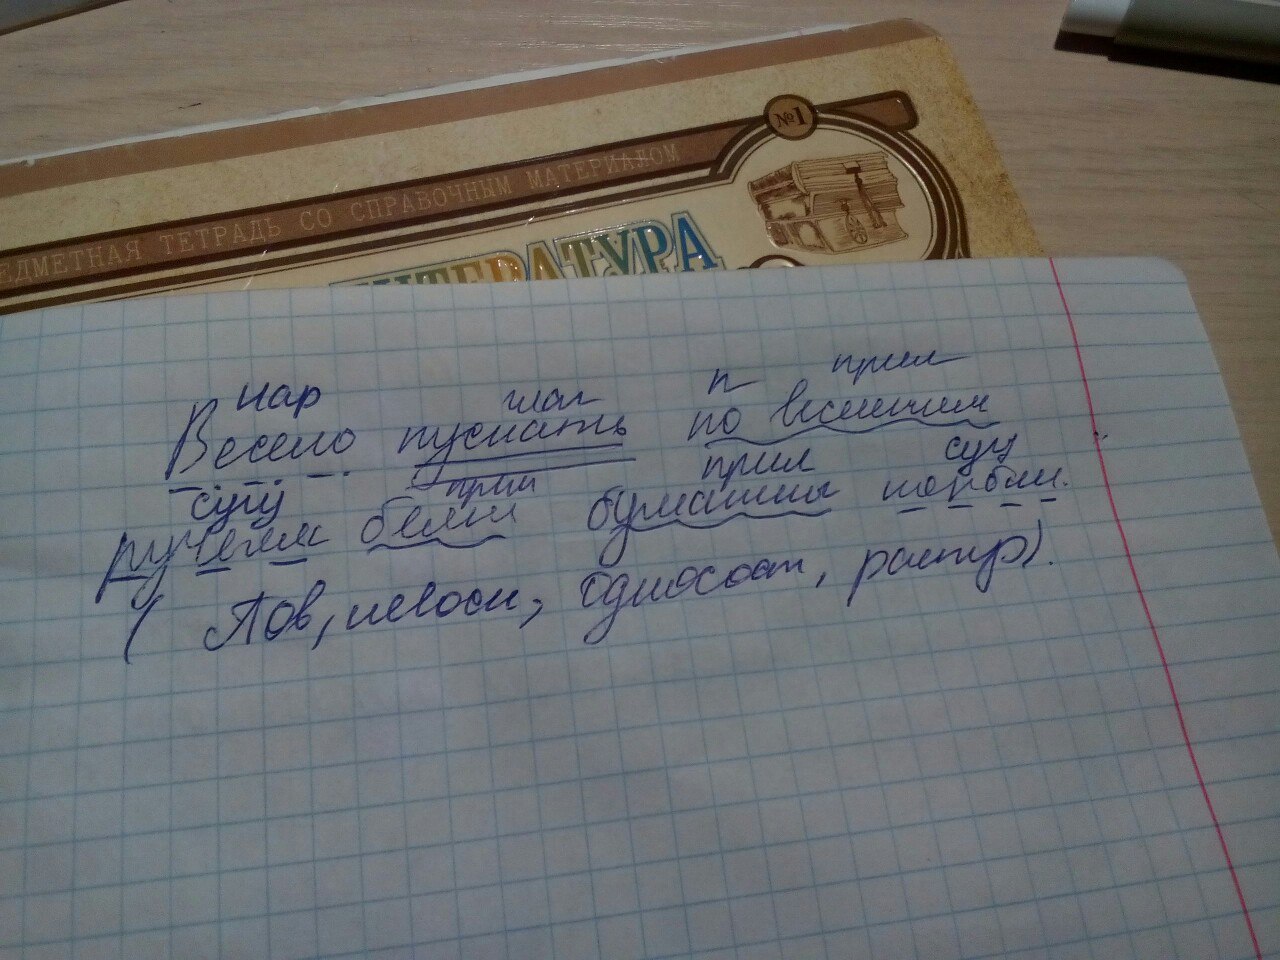 №1
ЕДМЕТНАЯ ТЕТРАДЬ СО СПРАВОЧНЫМ МАТЕРИАЛОМ
ЛИТЕРАТУРА
нар глаг п прил
Весело пускать по весенним
сущ прил прил сущ
ручьям белые бумажные корабли.
(Пов, невоск, односост, распр).